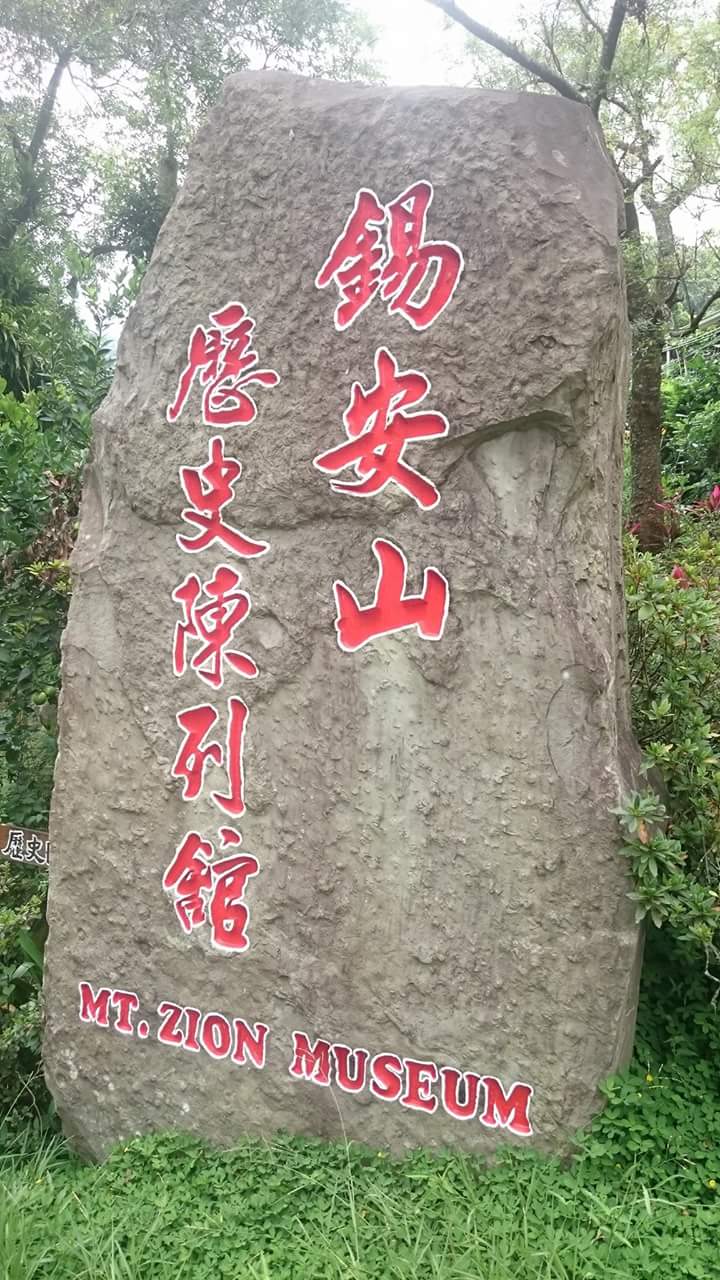 錫安山
歷史陳列舘
MT. ZION MUSEUM
歷史